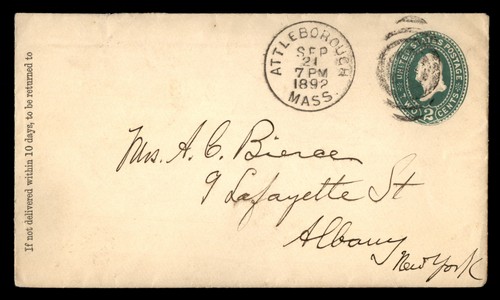 If not delivered within 10 days, to be returned to
ATTLEBOROUGH
SEP
21
7 PM
1892
MASS.
UNITED STATES POSTAGE
2 CENTS
Mrs. A. C. Bierce
9 Lafayette St
Albany
New York